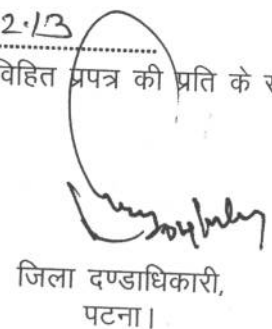 2.13
विहित प्रपत्र की प्रति के
जिला दण्डाधिकारी,
पटना।